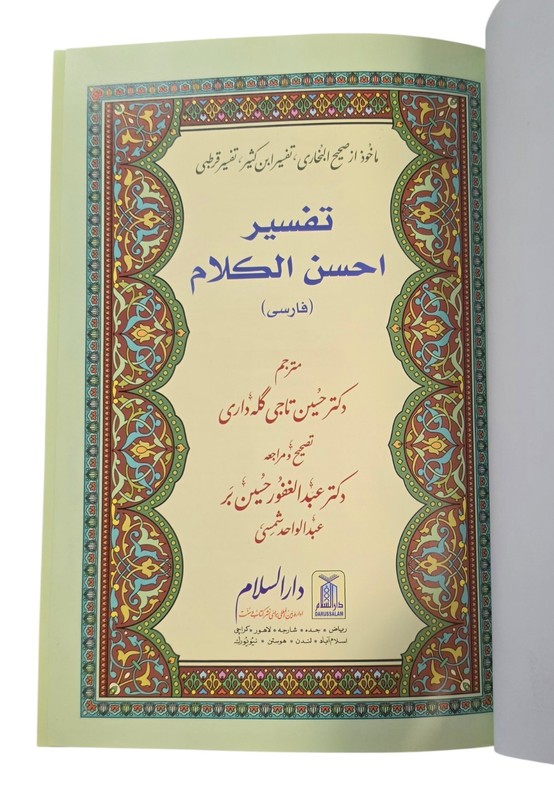 ماخوذ از صحیح البخاری، تفسیر ابن کثیر، تفسیر قرطبی
تفسیر
احسن الکلام
(فارسی)
مترجم
دکتر حسین تاجی گله داری
تصحیح و مراجعه
دکتر عبدالغفور حسین بَر
عبدالواحد شمسی
دارالسلام
دارالسلام
DARUSSALAM
ریاض • جده • شارجه • لاهور • کراچی
اسلام‌آباد • لندن • هوستن • نیویورک